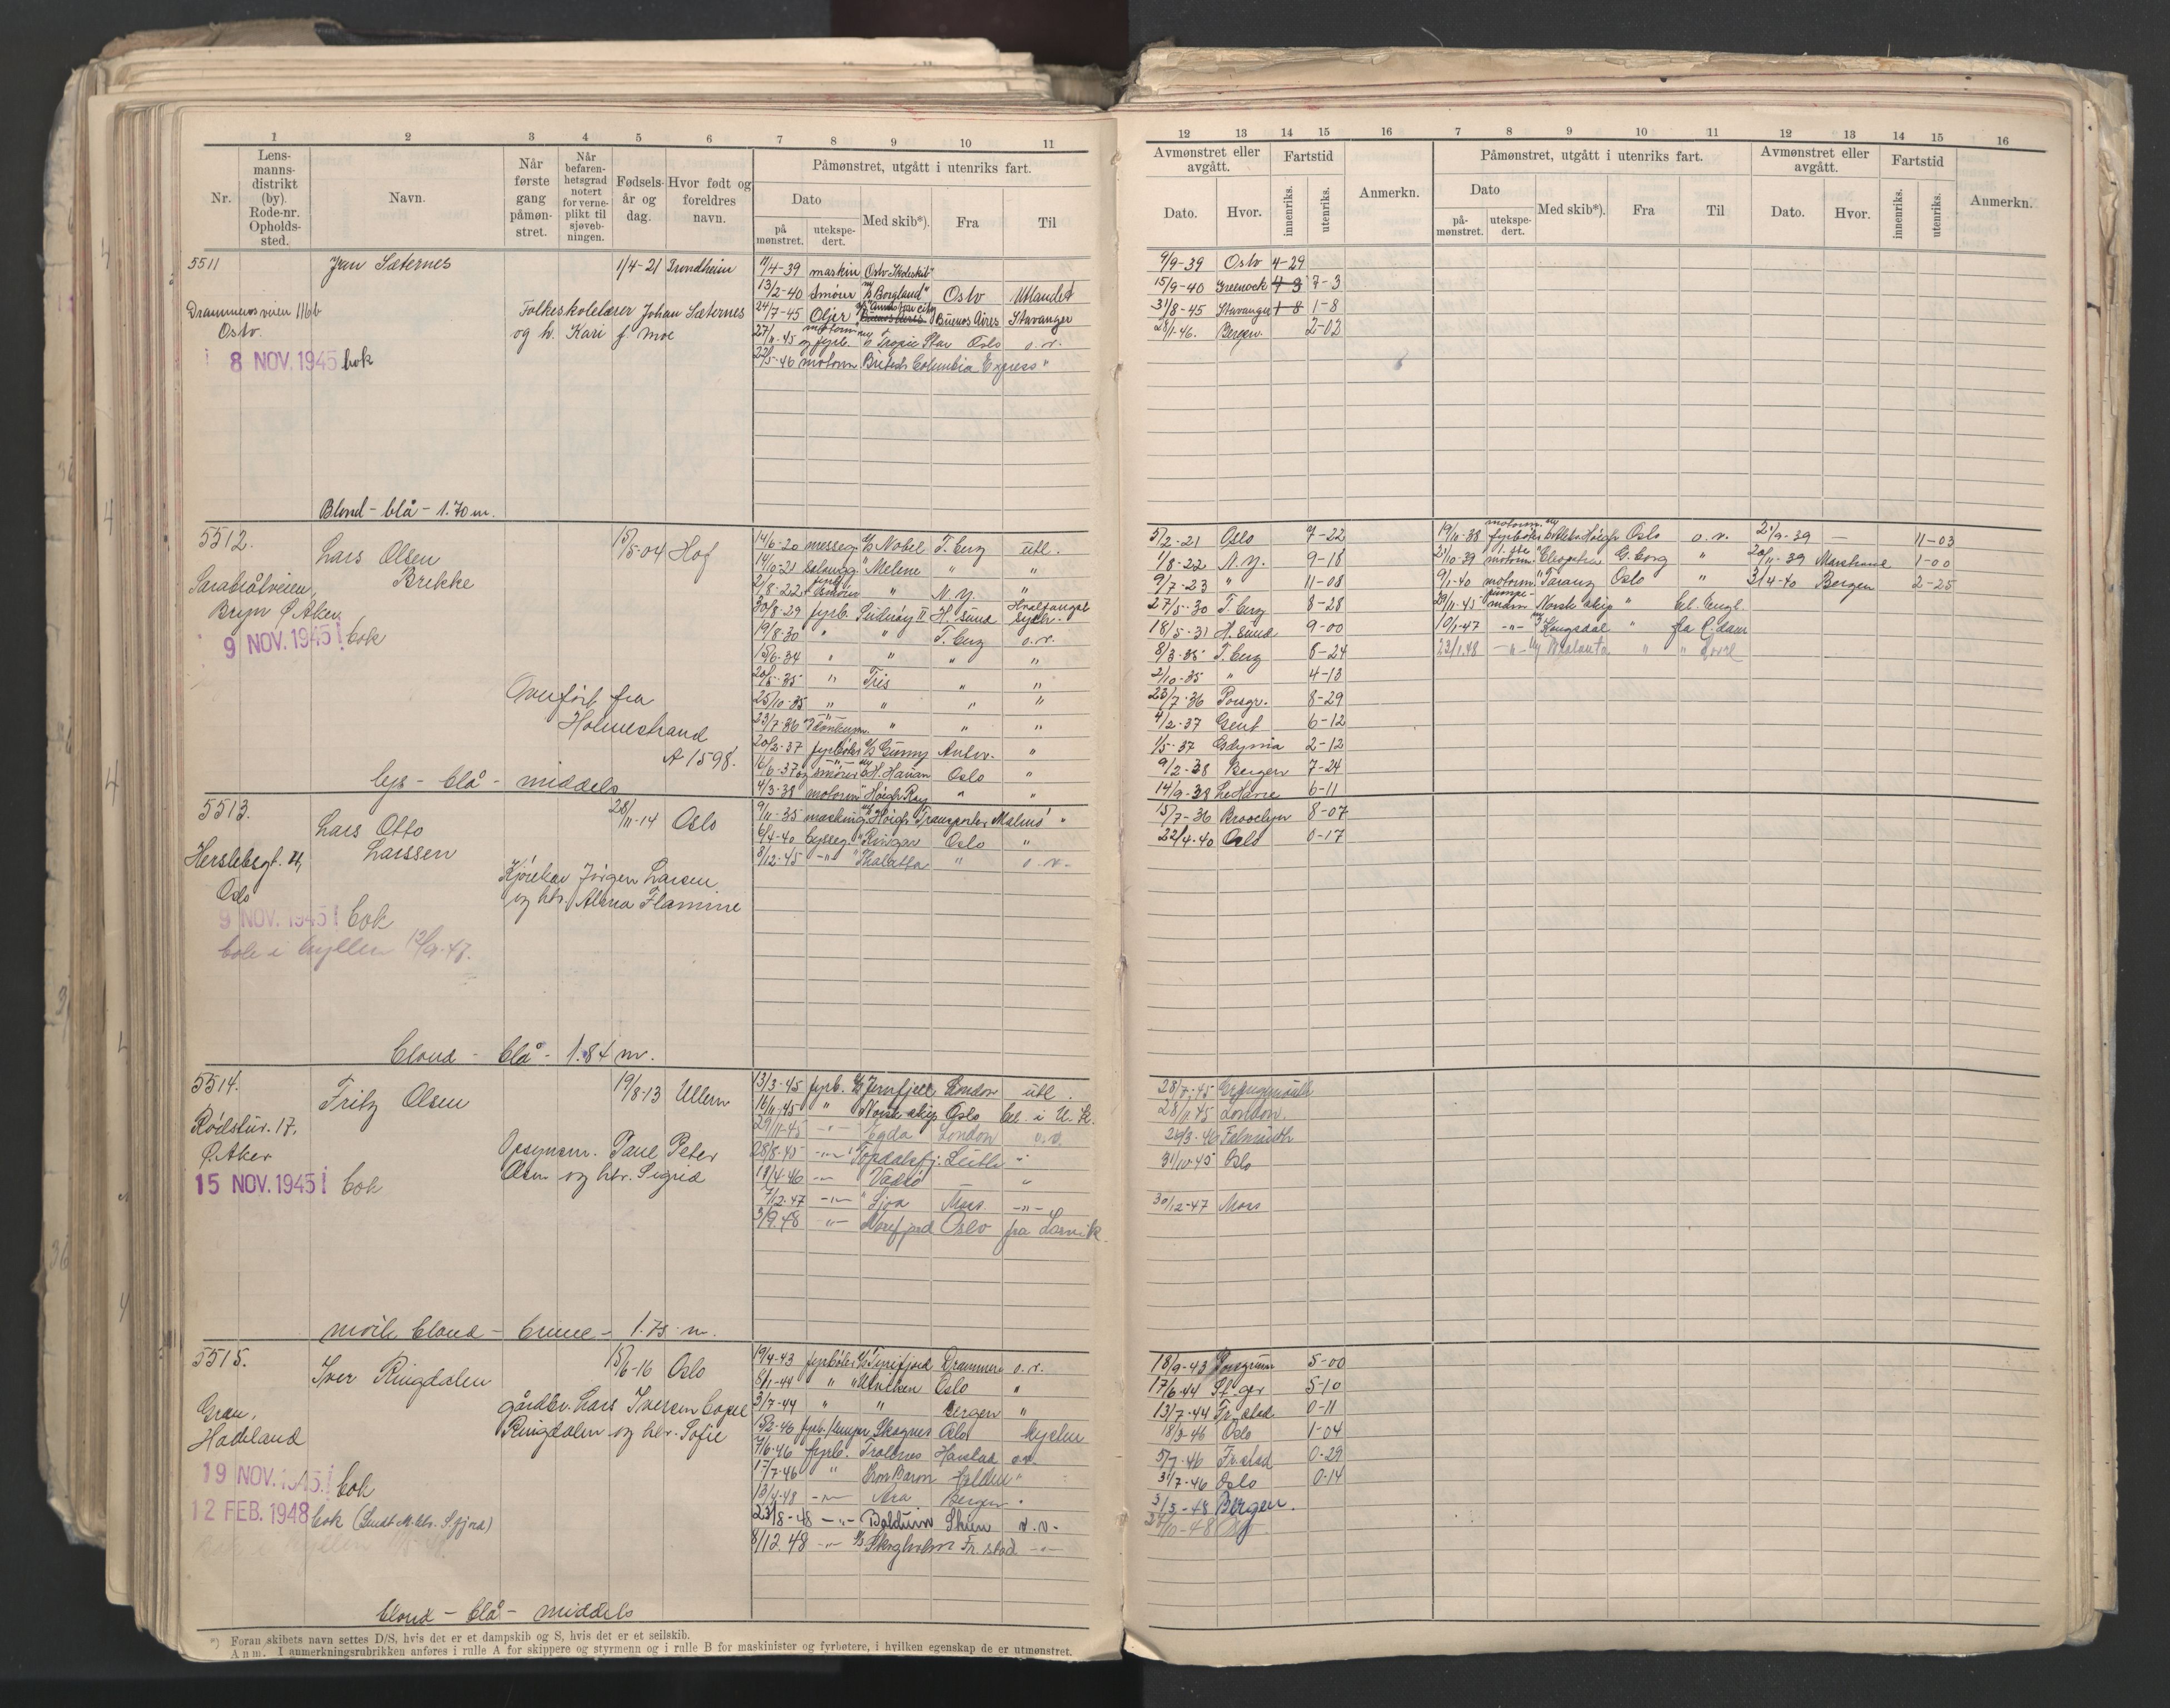 1 2 3 4 5 6 7 8 9 10 11
Nr. Lensmannsdistrikt (by). Rode-nr. Opholdssted. Navn. Når første gang påmønstret. Når befarenhetsgrad notert for verneplikt til sjøvebningen. Fødselsår og dag. Hvor født og foreldres navn. Påmønstret, utgått i utenriks fart.
Dato på mønstret. utekspedert. Med skib*). Fra Til
12 13 14 15 16 7 8 9 10 11 12 13 14 15 16
Avmønstret eller avgått. Dato. Hvor. Fartstid innenriks. utenriks. Anmerkn. Påmønstret, utgått i utenriks fart. Dato påmønstret. utekspedert. Med skib*). Fra Til Avmønstret eller avgått. Dato. Hvor. Fartstid innenriks. utenriks. Anmerkn.
5511 Jan Sæternes 1/4-21 Trondheim
Drammensveien 116b
Oslo.
Folkeskolelærer Johan Sæternes
og h. Kari f. Moe
8 NOV. 1945 bok
11/4-39 maskin Oslo Skoleskib 9/9-39 Oslo 4-29
13/2-40 smører "Borgland" Oslo Utlandet 15/9-40 Greenock 7-3
24/7-45 Oljer Buenos Aires Stavanger 31/8-45 Stavanger 1-8
27/11-45 og fyrb. Tropic Star Oslo o.v. 28/1-46. Bergen. 2-02
22/5-46 motorm British Columbia Express "
Blond - blå - 1.70 m.
5512. Lars Olsen Brekke 15/5-04 Hof
Bryn Ø. Aker
9 NOV. 1945 bok
Overført fra
Holmestrand
A 1598.
14/6-20 messeg. Nobel T.berg utl. 5/2-21 Oslo 7-22
14/10-21 " Melene " " 1/8-22 N.Y. 9-18
2/8-22 " N.Y. " 9/7-23 " 11-08
30/8-29 fyrb. Suderøy II H.sund Hvalfangst Sydh. 27/5-30 T.berg 8-28
19/8-30 " " T.berg o.v. 18/5-31 H.sund 9-00
15/6-34 " " " " 8/3-35 T.berg 8-24
20/5-35 " Tris " " 2/10-35 " 4-13
25/10-35 " " " " 23/7-36 Porsgr. 8-29
23/7-36 Donkeym. " " " 4/2-37 Gent 6-12
20/2-37 fyrbøter Gunny Antw. " 1/5-37 Gdynia 2-12
16/6-37 og smører Oslo " 9/2-38 Bergen 7-24
4/3-38 motorm " Høegh Ray " " 14/9-38 Le Havre 6-11
19/11-38 fyrbøter Oslo o.v. 21/9-39 — 11-03
21/10-39 motorm. "Cleopatra G.borg " 20/11-39 Marstrand 1-00
9/1-40 motorm. "Taranger Oslo " 3/4-40 Bergen 2-25
29/11-45 pumpemann Norsk skip " bel. Engl.
10/1-47 -"- Kongsdal " fra
23/1.48 -"- " "
lys - blå - middels
5513. Lars Otto Larssen 28/11-14 Oslo
Herslebsgt.
Oslo
Kjørekar Jørgen Larsen
og htr. Flamme
9 NOV. 1945 bok
bok i hyllen 12/9-47.
9/11-35 masking. Høegh Transporter Malmø " 15/7-36 Brooklyn 8-07
6/4-40 bysseg. "Ringar Oslo " 22/4-40 Oslo 0-17
8/12-45 -"- "Thalatta " o.v.
blond - blå - 1.84 m.
5514. Fritz Olsen 19/8-13 Ullern
17.
Ø. Aker
Opsynsm. Paul Peter
Olsen og htr. Sigrid
15 NOV. 1945 bok
13/3-45 fyrb. Jernfjell London utl. 28/7-45
16/11-45 " Norsk skip Oslo bel. i U.K. 28/11 45 London.
29/11-45 -"- Egda London o.v. 26/3-46 Falmouth
28/8-45 -"- Topdalsfj. Leith " 31/10-45 Oslo
18/4-46 -"- Vadsø "
7/12.47 -"- " Sjoa Moss -"- 30/12-47 Moss
3/9.48 -"- Norefjord Oslo fra Larvik.
mørk blond - brune - 1.75 m.
5515. Iver Ringdalen 15/6-16 Oslo
Gran,
Hadeland
gårdbr. Lars Iversen
Ringdalen og htr. Sofie
19 NOV. 1945 bok
12 FEB. 1948 bok
19/4-43 fyrbøter Tyrifjord Drammen o.v. 18/9-43 Porsgrunn 5-00
8/1-44 " "Ulriken Oslo " 17/6-44 St.ger 5-10
3/7-44 " " Bergen " 13/7-44 Fr.stad 0-11
15/2-46 fyrb./lemper Skagnes Oslo kysten 18/3-46 Oslo 1-04
7/6-46 fyrb. Trolnes Harstad o.v. 5/7-46 Fr.stad 0-29
17/7-46 " Iron Baron Halden " 31/7-46 Oslo 0-14
13/4-48 -"- Ara Bergen " 3/5-48 Bergen.
23/8-48 -"- Balduin Skien o.v.
8/12.48 -"- Skogholm Fr.stad. -"-
blond - blå - middels
*) Foran skibets navn settes D/S, hvis det er et dampskib og S, hvis det er et seilskib.
Anm. I anmerkningsrubrikken anføres i rulle A for skippere og styrmenn og i rulle B for maskinister og fyrbøtere, i hvilken egenskap de er utmønstret.